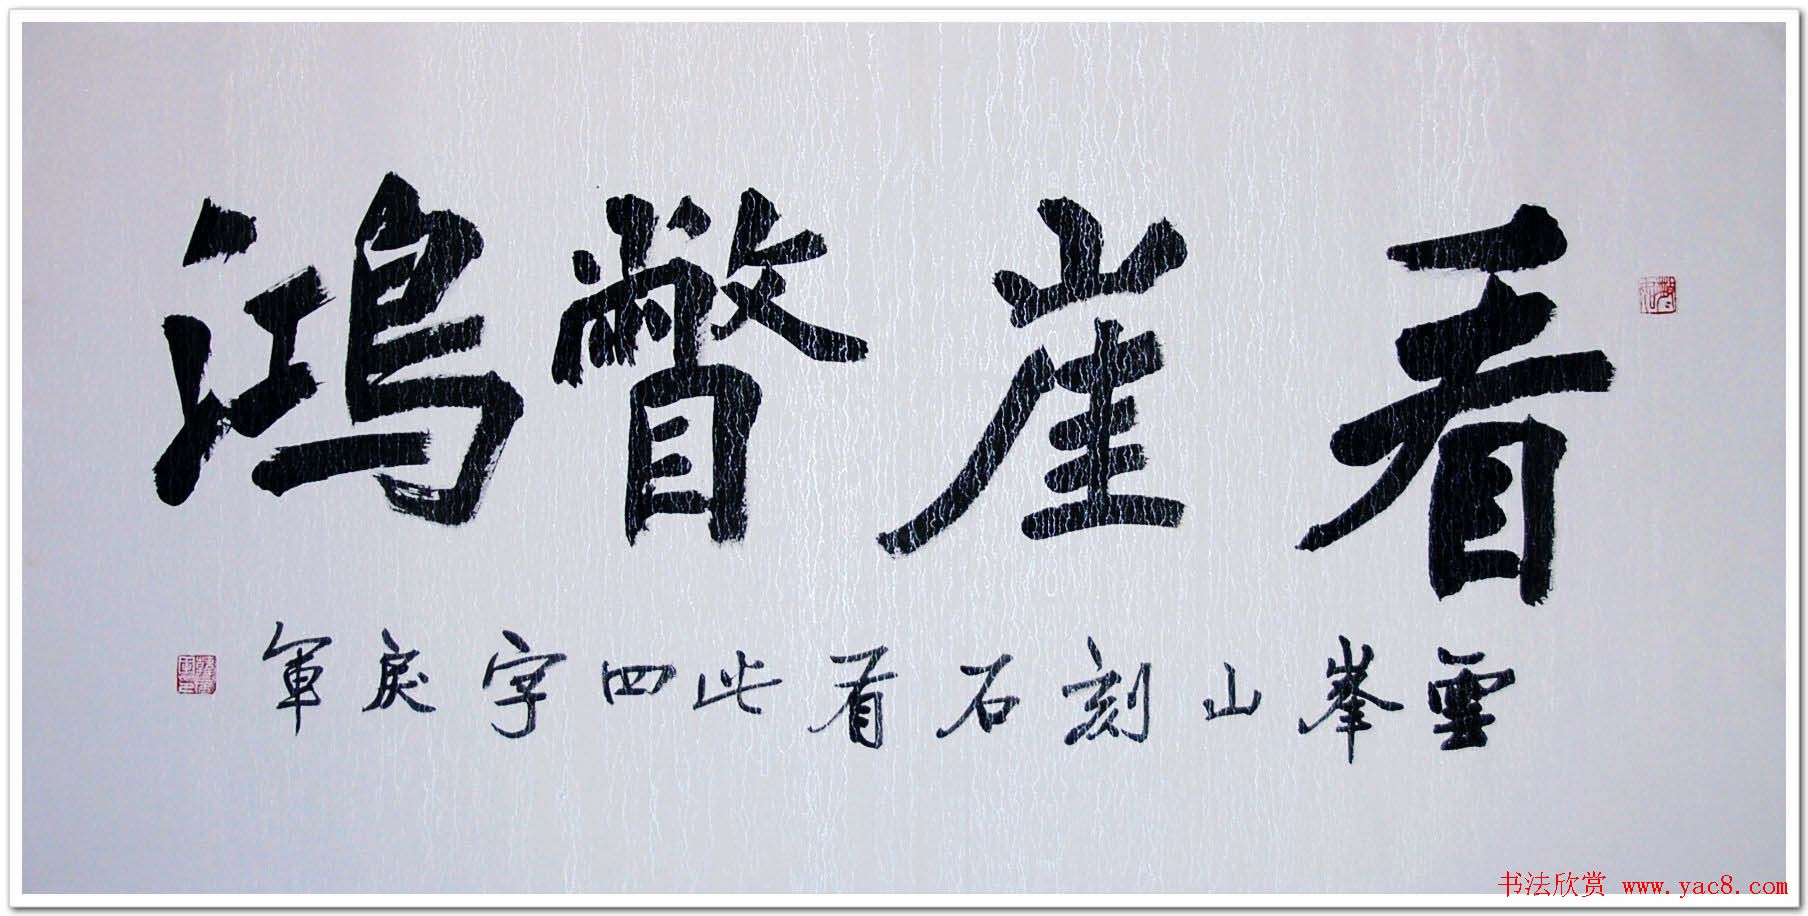 看崖瞥鸿
雲峯山刻石有此四字軍
书法欣赏 www.yac8.com